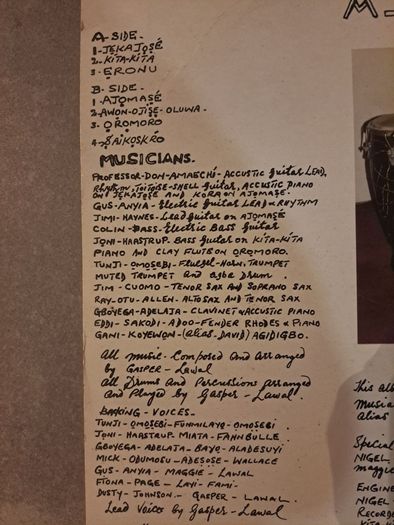 A-SIDE.
1-JẸKAJOṢÉ
2-KITA-KITA
3-ERONU
B-SIDE.
1-AJỌMAṢÉ
2-AWON-OJISE-OLUWA.
3-ỌRỌMORO
4-ṢAIKOSKRO
MUSICIANS.
PROFESSOR-DON-AMAECHI-ACCUSTIC guitar LEAD,
RHYTHM, TOITOISE-SHELL guitar, ACCUSTIC PIANO
ON JẸKAJOṢÉ AND KORA ON AJỌMAṢE.
GUS-ANYIA-Electric guitar LEAD & RHYTHM
JIMI-HAYNES-Lead guitar on AJỌMAṢÉ
COLIN-BASS-Electric Bass guitar
JONI-HAASTRUP. BASS guitar on KITA-KITA
PIANO AND CLAY FLUTE ON ỌRỌMORO.
TUNJI-OMOṢEBI-Fluegel-Horn, TRUMPET
MUTED TRUMPET and agba drum.
JIM-CUOMO-TENOR SAX AND SOPRANO SAX
RAY-OTU-ALLEN-ALTO SAX AND TENOR SAX
GBOYEGA-ADELAJA-CLAVINET & ACCUSTIC PIANO
EDDI-SAKODI-ADOO-FENDER RHODES & PIANO
GANI-KOYEWON-(alias-DAVID) AGIDIGBO.
All music-Composed And Arranged
by GASPER-Lawal
All Drums And Percussions Arranged
and Played by Gasper-Lawal
BACKING-VOICES.
TUNJI-OMOṢEBI-FUNMILAYO-OMOṢEBI
JONI-HAASTRUP. MIATA-FAHNBULLE
GBOYEGA-ADELAJA-BAYO-ALADESUYI
MICK-ODUMOSU-ADEṢOSE-WALLACE
GUS-ANYIA-MAGGIE-LAWAL
FIONA-PAGE-LAYI-FAMI-
DUSTY-JOHNSON.-GASPER-LAWAL.
Lead Voices by Gasper-Lawal
This alb
Musia
alias
Special
NIGEL
maggie
ENGINE
NIGEL
RECORD